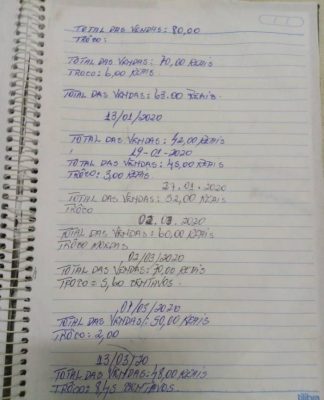 TOTAL DAS VENDAS: 80,00
TROCO:
TOTAL DAS VENDAS: 70,00 REAIS
TROCO: 6,00 REAIS
TOTAL DAS VENDAS: 63.00 REAIS.
13/01/2020
TOTAL DAS VENDAS: 42,00 REAIS
19-01-2020
TOTAL DAS VENDAS: 48,00 REAIS
TROCO: 3,00 REAIS
27.01.2020
TOTAL DAS VENDAS: 52,00 REAIS
TROCO
02.03.2020
TOTAL DAS VENDAS: 60,00 REAIS
TROCO MOEDAS
02/03/2020
TOTAL DAS VENDAS: 70,00 REAIS
TROCO = 5,60 CENTAVOS
09/03/2020
TOTAL DAS VENDAS: 50,00 REAIS
TROCO = 2,00
13/03/20
TOTAL DAS VENDAS: 48,00 REAIS
TROCO: 8,45 CENTAVOS
tilibra